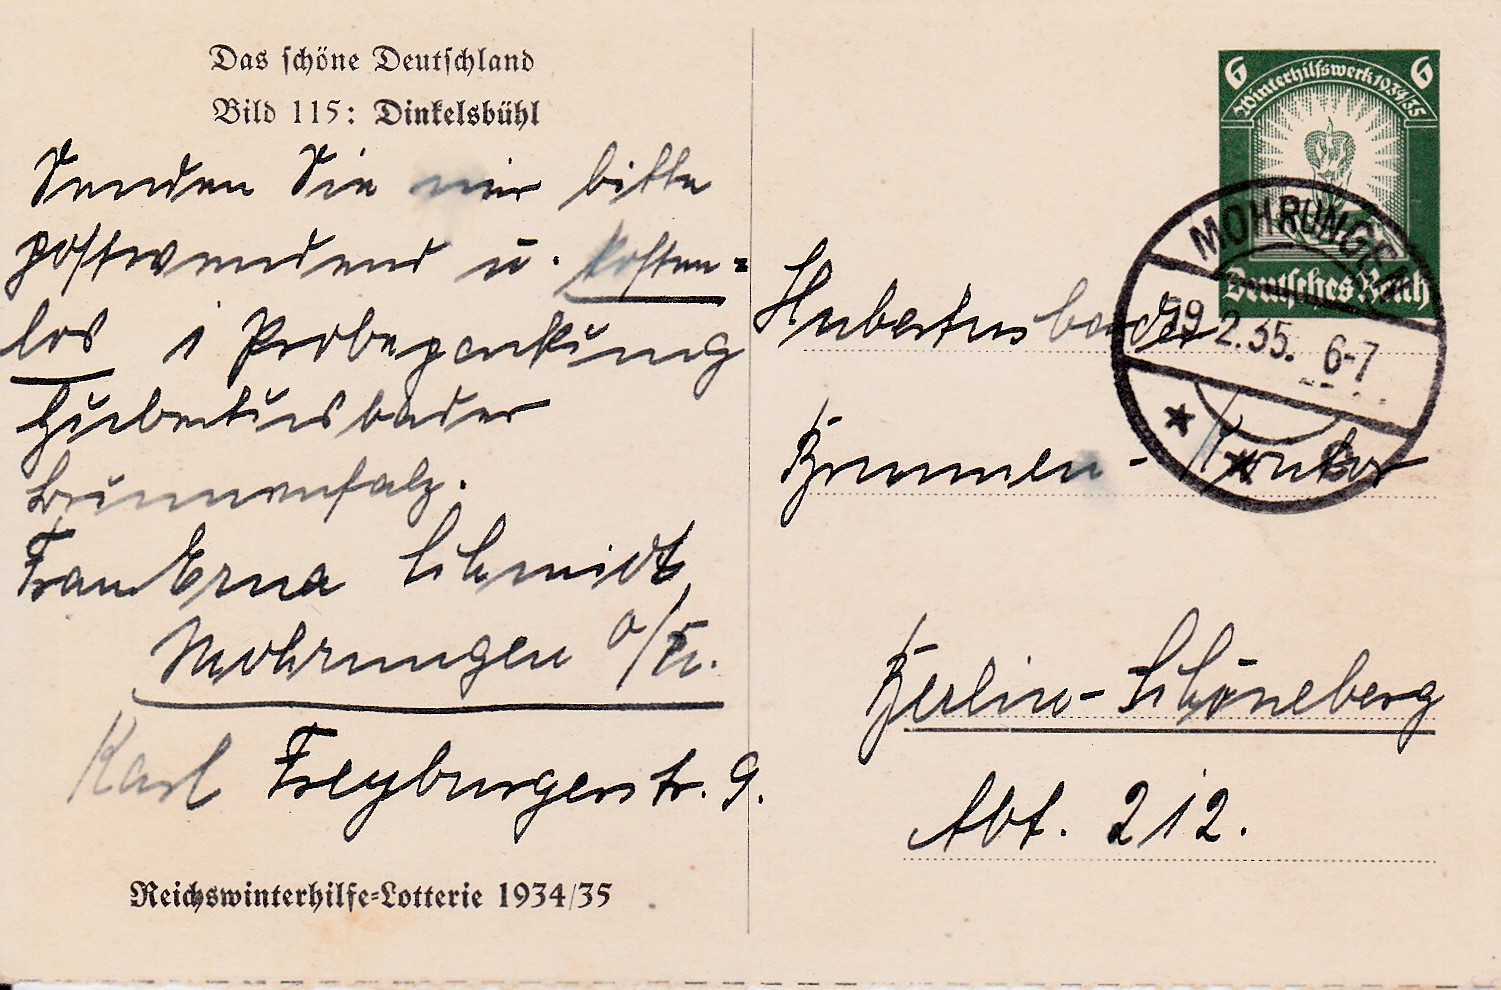 Das schöne Deutschland
Bild 115: Dinkelsbühl
Senden Sie mir bitte
postwendend u. kosten=
los 1 Probepackung
Hubertusbader
Brunnensalz.
Frau Erna Schmidt
Mohrungen O/Pr.
Karl Freyburgerstr. 9.
Reichswinterhilfe=Lotterie 1934/35
6 6
Winterhilfswerk 1934/35
Deutsches Reich
MOHRUNGEN
19.2.35. 6-7
Hubertusbader
Brunnen-Kontor
Berlin-Schöneberg
Abt. 212.